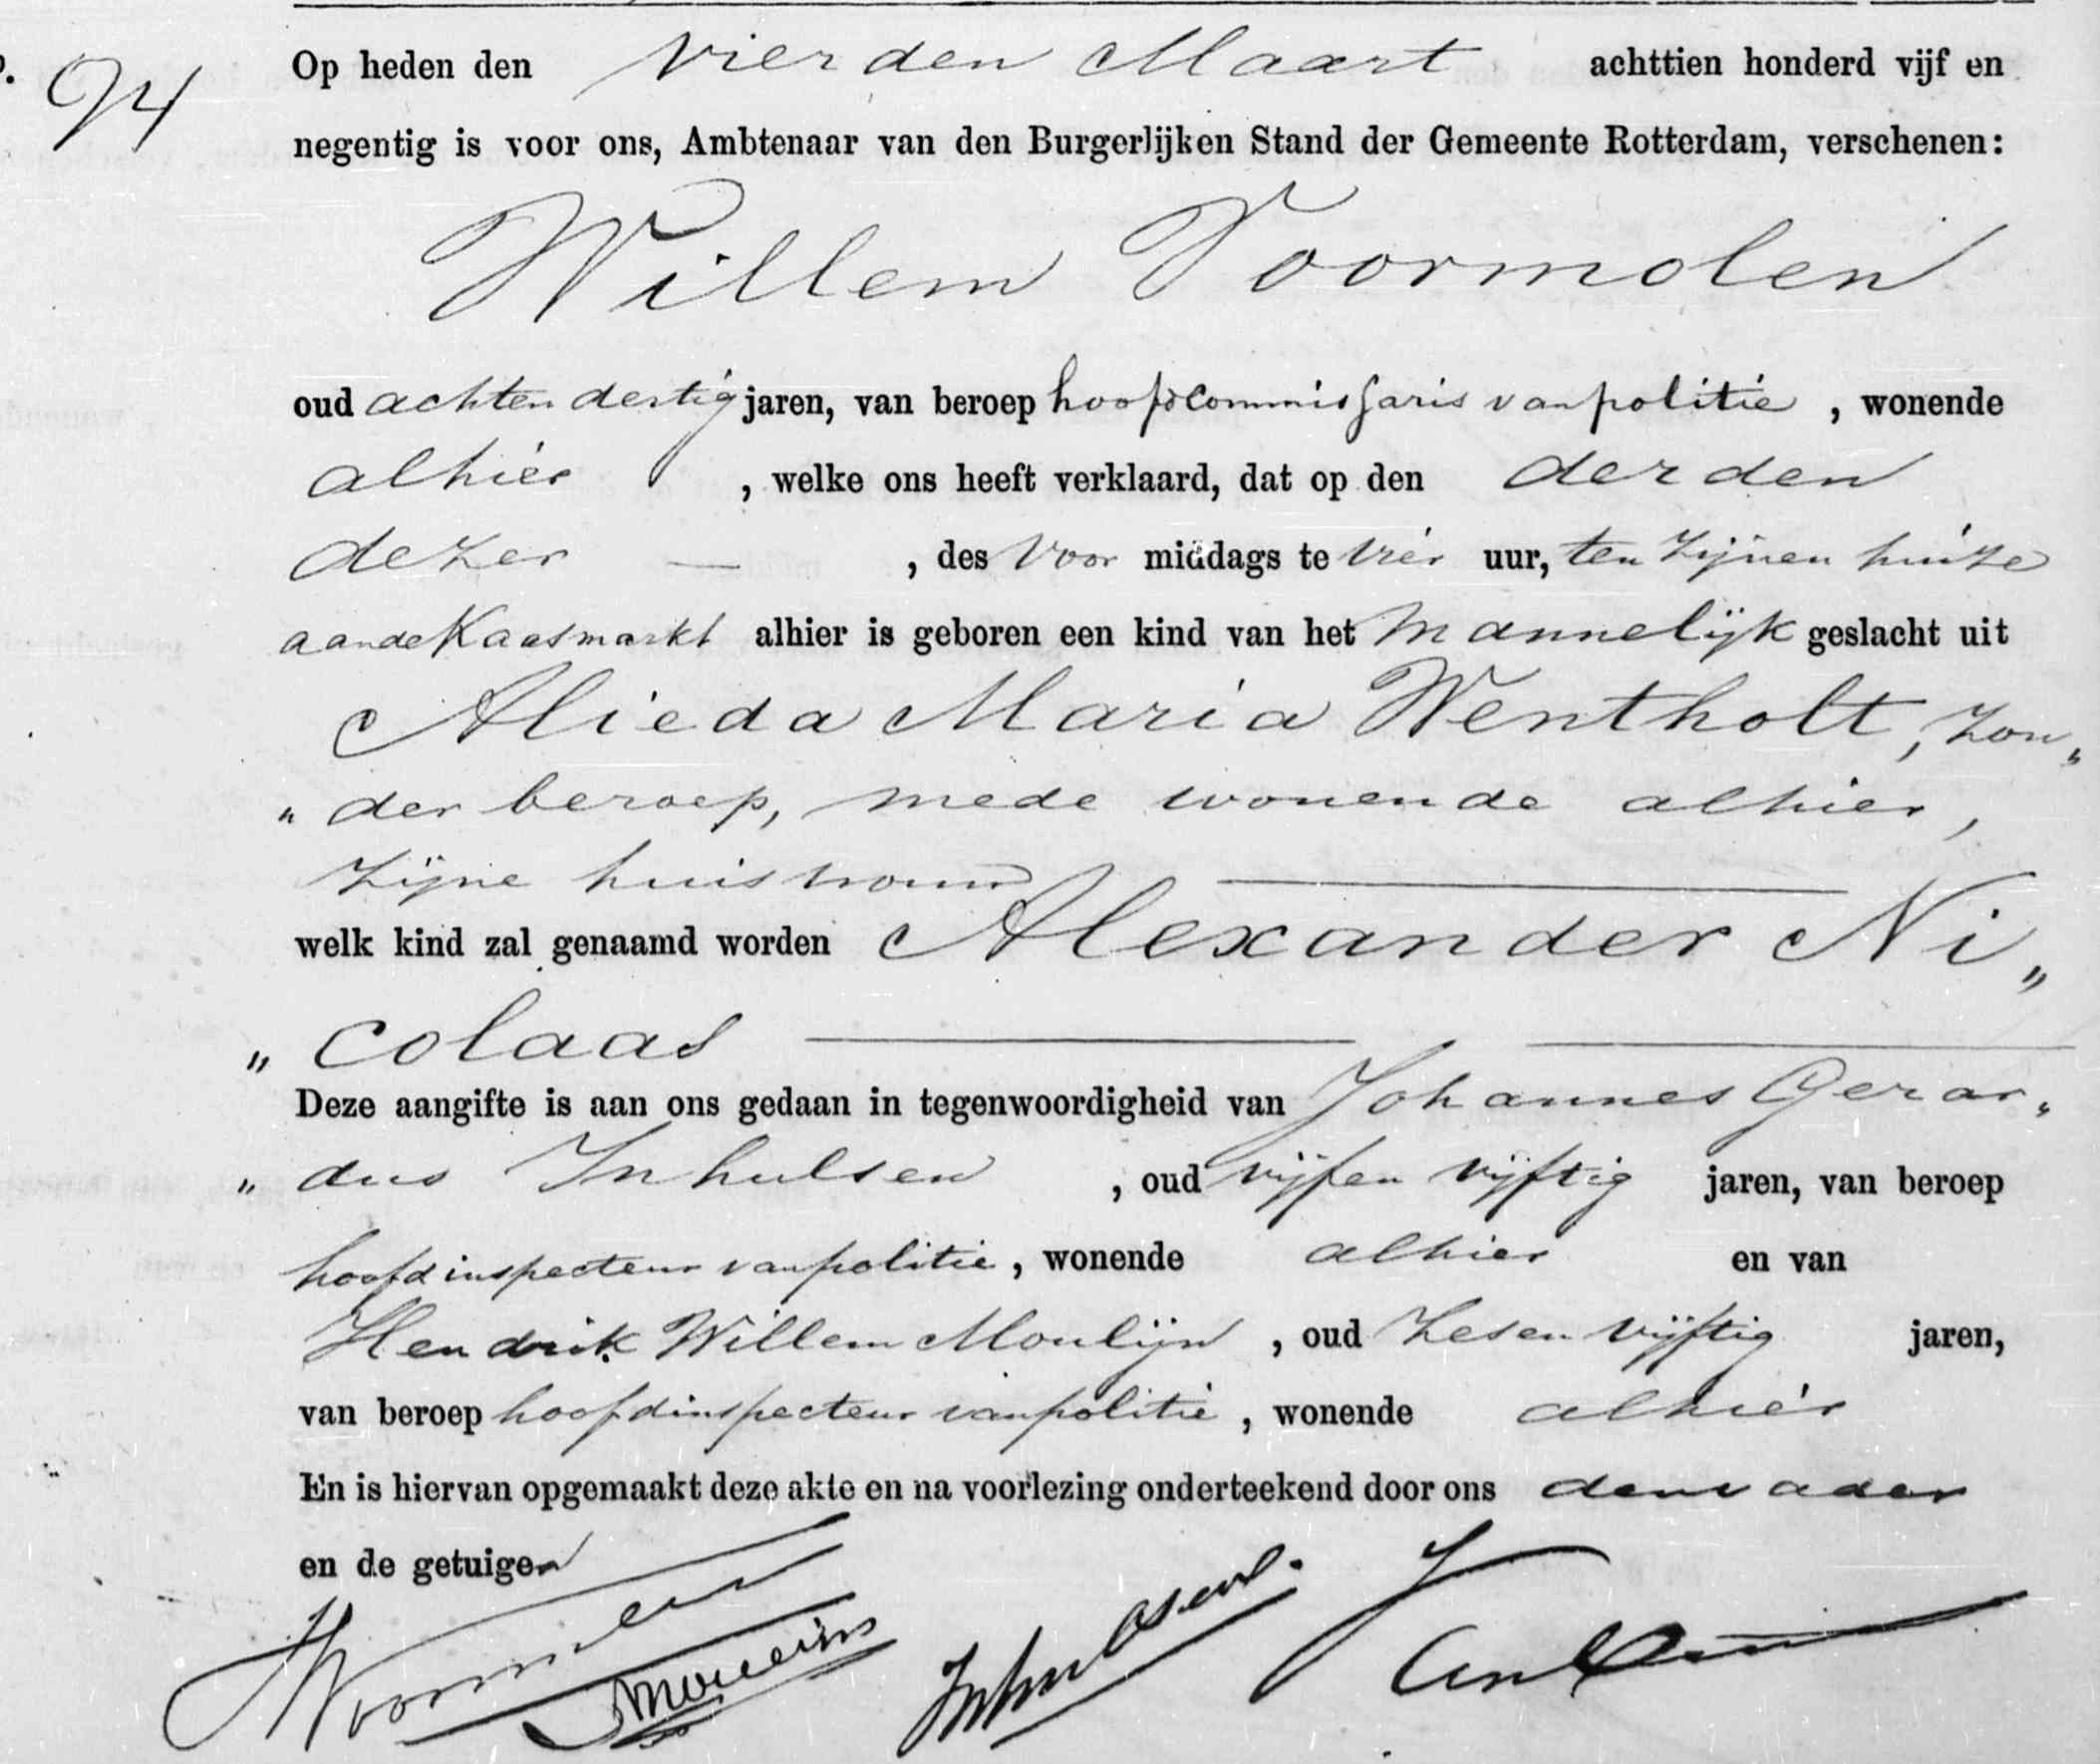 94
Op heden den vierden Maart achttien honderd vijf en
negentig is voor ons, Ambtenaar van den Burgerlijken Stand der Gemeente Rotterdam, verschenen:
Willem Voormolen
oud achten dertig jaren, van beroep hoofdcommissaris van politie, wonende
alhier, welke ons heeft verklaard, dat op den derden
dezer —, des voor middags te vier uur, ten zijnen huize
aan de Kaasmarkt alhier is geboren een kind van het mannelijk geslacht uit
Alieda Maria Wentholt, zon„
„ der beroep, mede wonende alhier,
zijne huisvrouw
welk kind zal genaamd worden Alexander Ni„
„ colaas
Deze aangifte is aan ons gedaan in tegenwoordigheid van Johannes Gerar„
„ dus Inhulsen, oud vijfen vijftig jaren, van beroep
hoofdinspecteur van politie, wonende alhier en van
Hendrik Willem Moulijn, oud zesen vijftig jaren,
van beroep hoofdinspecteur van politie, wonende alhier
En is hiervan opgemaakt deze akte en na voorlezing onderteekend door ons den vader
en de getuigen
WVoormolen
Moulijn
Inhulsen